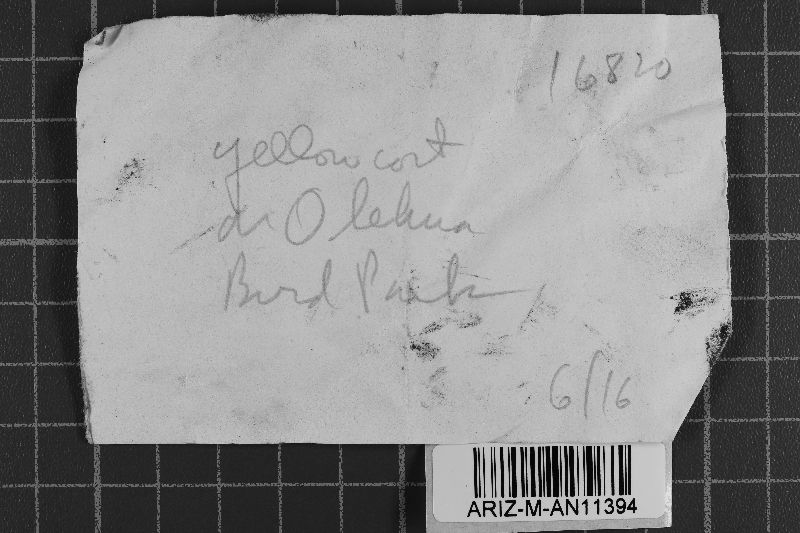 16820
yellow cort
on Olehua
Bird Park
6/16
ARIZ-M-AN11394